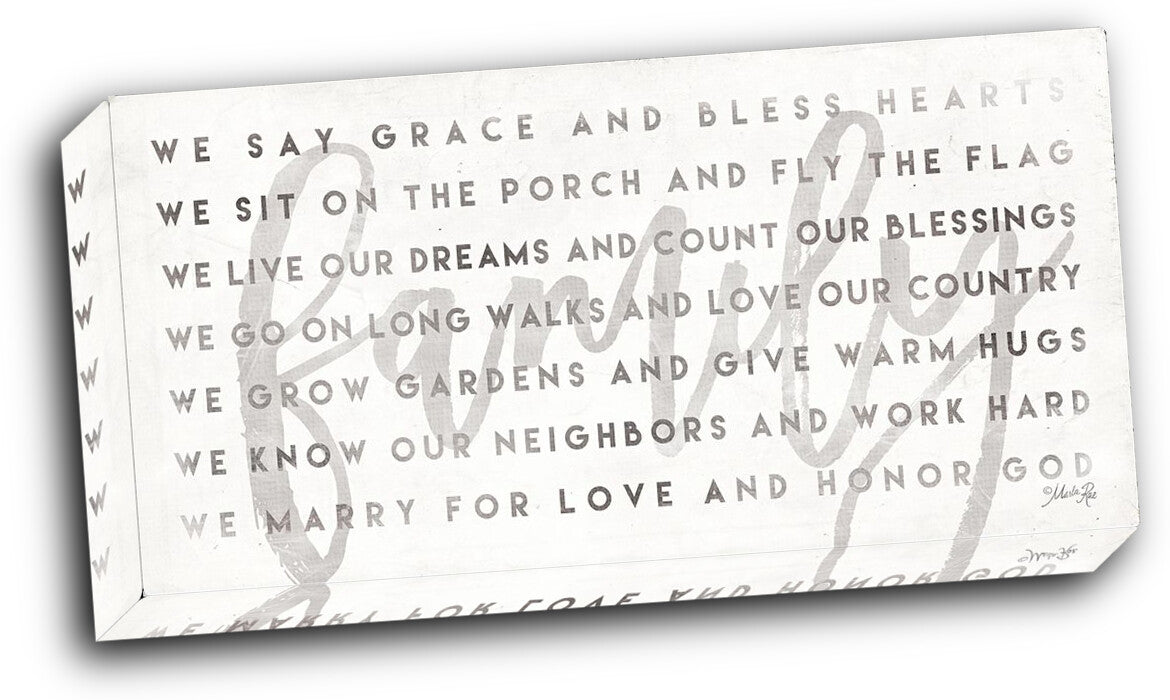 WE SAY GRACE AND BLESS HEARTS
WE SIT ON THE PORCH AND FLY THE FLAG
WE LIVE OUR DREAMS AND COUNT OUR BLESSINGS
WE GO ON LONG WALKS AND LOVE OUR COUNTRY
WE GROW GARDENS AND GIVE WARM HUGS
WE KNOW OUR NEIGHBORS AND WORK HARD
WE MARRY FOR LOVE AND HONOR GOD
family
©Marla Rae